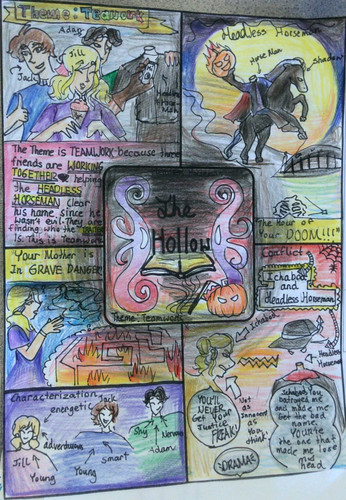 Theme: Teamwork
Adam
Jill
Jack
Headless Horseman
Horse Man
Shadow
The Theme is TEAMWORK because three
friends are WORKING
TOGETHER helping
The HEADLESS
HORSEMAN clear
his name since he
wasn't evil. They are
finding who the
is. This is Teamwork
The
Hollow
Theme: Teamwork
The Hour of
Your DOOM!!!"
"Your Mother is
In GRAVE DANGER"
Conflict
Ichabod
and
Headless Horseman
Ichabod
Headless
Horseman
YOU'LL
NEVER
Get Your
Justice
FREAK!
Not as
Innocent
as You
think
DRAMA
Ichabod You
battrayed me
and made me
Get the bad
name.
YOU are
the one that
made me lose
my
head
Characterization
energetic
Jack
adventurous
Shy
Nervous
Adam
smart
Jill
Young
Young